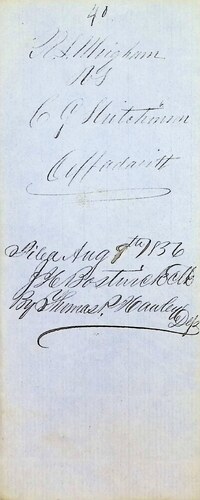 40
R. S. Mrigham
VS
C G Hutchinson
Affadavitt
Filed Aug 9th 1856
J H Bostwick Clk
By Thomas P. Hawley Dep